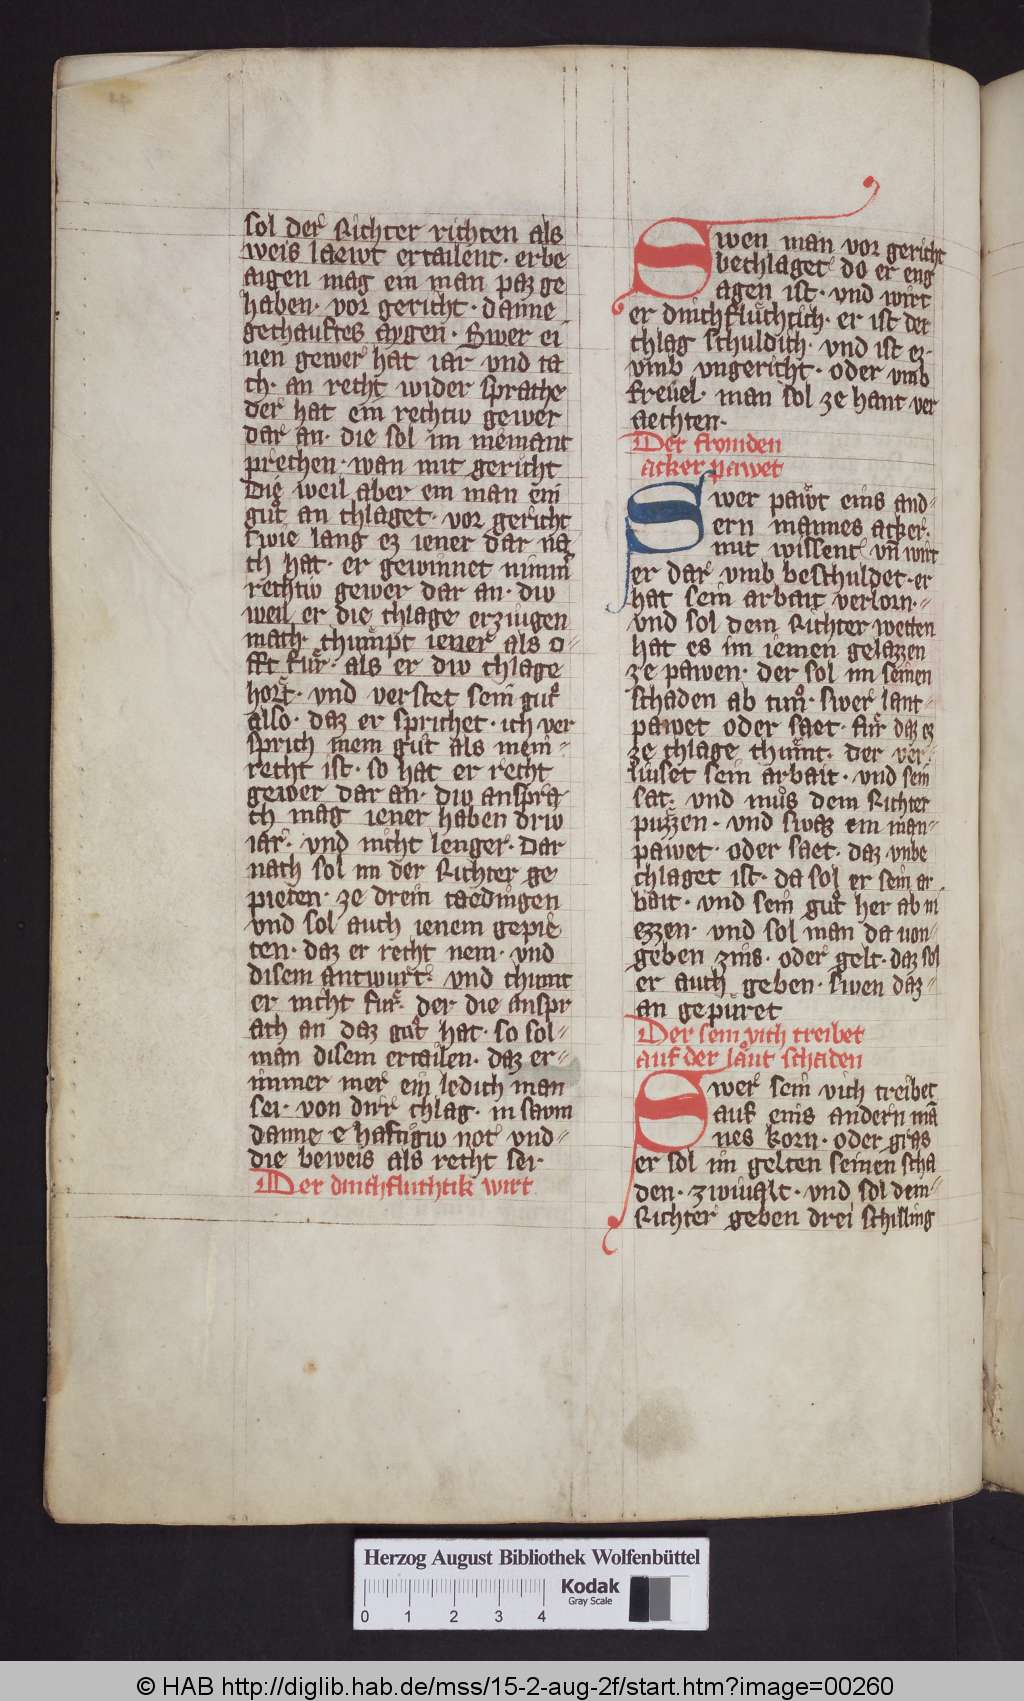 sol der Richter richten als
weis laewt ertailent · erbe
aigen mag ein man paz ge
haben · vor gericht · danne
gechauftes aygen · Swer ei
nen gewer hat iar vnd ta
ch · an recht wider sprache
der hat ein rechtiv gewer
dar an · die sol im niemant
prechen · wan mit gericht
Die weil aber ein man ein
guͦt an chlaget · vor gericht
swie lang ez iener dar na
ch hat · er gewinnet nimmˀ
rechtiv gewer dar an · div
weil er die chlage erziugen
mach · chumpt iener als o=
fft fuͤr · als er div chlage
hort · vnd verstet sein guͦt
also · daz er sprichet · ich ver
sprich mein guͦt als mein=
recht ist · so hat er recht
gewer dar an · div anspra
ch mag iener haben driv
iar · vnd nicht lenger · Dar
nach sol im der Richter ge
pieten · ze drein taedingen
vnd sol auch ienem gepie
ten · daz er recht nem · vnd
disem antwurt · vnd chumt
er nicht fuͤr · der die anspr
ach an daz guͦt hat · so sol=
man disem ertailen · daz er=
immer mer ein ledich man
sei · von dirr chlag · in saum
danne e haftigiv not vnd=
die beweis als recht sei ·
Der durchfluchtik wirt
Swen man vor gericht
bechlaget do er eng
agen ist · vnd wirt
er durchfluͤchtich · er ist der
chlag schuldich · vnd ist ez ·
vmb vngericht · oder vmb
freuel · man sol ze hant ver
aechten ·
Der fromden
acker pawet
Swer pawt eins and=
ern mannes acker ·
mit wissent vn̄ wirt
er dar vmb beschuldet · er
hat sein arbait verlorn · =
vnd sol dem Richter wetten
hat es im iemen gelazzen
ze pawen · der sol im seinen
schaden ab tuͦn · swer lant=
pawet oder saet · fuͤr daz ez
ze chlage chuͤmt · der ver=
liuset sein arbait · vnd sein
sat · vnd muͦs dem Richter
puzzen · vnd swaz ein man=
pawet · oder saet · daz vnbe
chlaget ist · da sol er sein ar
bait · vnd sein guͦt her ab ni
ezzen · vnd sol man da uon=
geben zins · oder gelt · daz sol
er auch geben · swen daz=
an gepuret
Der sein vich treibet
auf der laͤut schaden
Swer sein vich treibet
auf eins andern mā
nes korn · oder gras
er sol im gelten seinen scha
den · zwiualt · vnd sol dem=
Richter geben drei schilling
Herzog August Bibliothek Wolfenbüttel
Kodak
Gray Scale
0 1 2 3 4
© HAB http://diglib.hab.de/mss/15-2-aug-2f/start.htm?image=00260